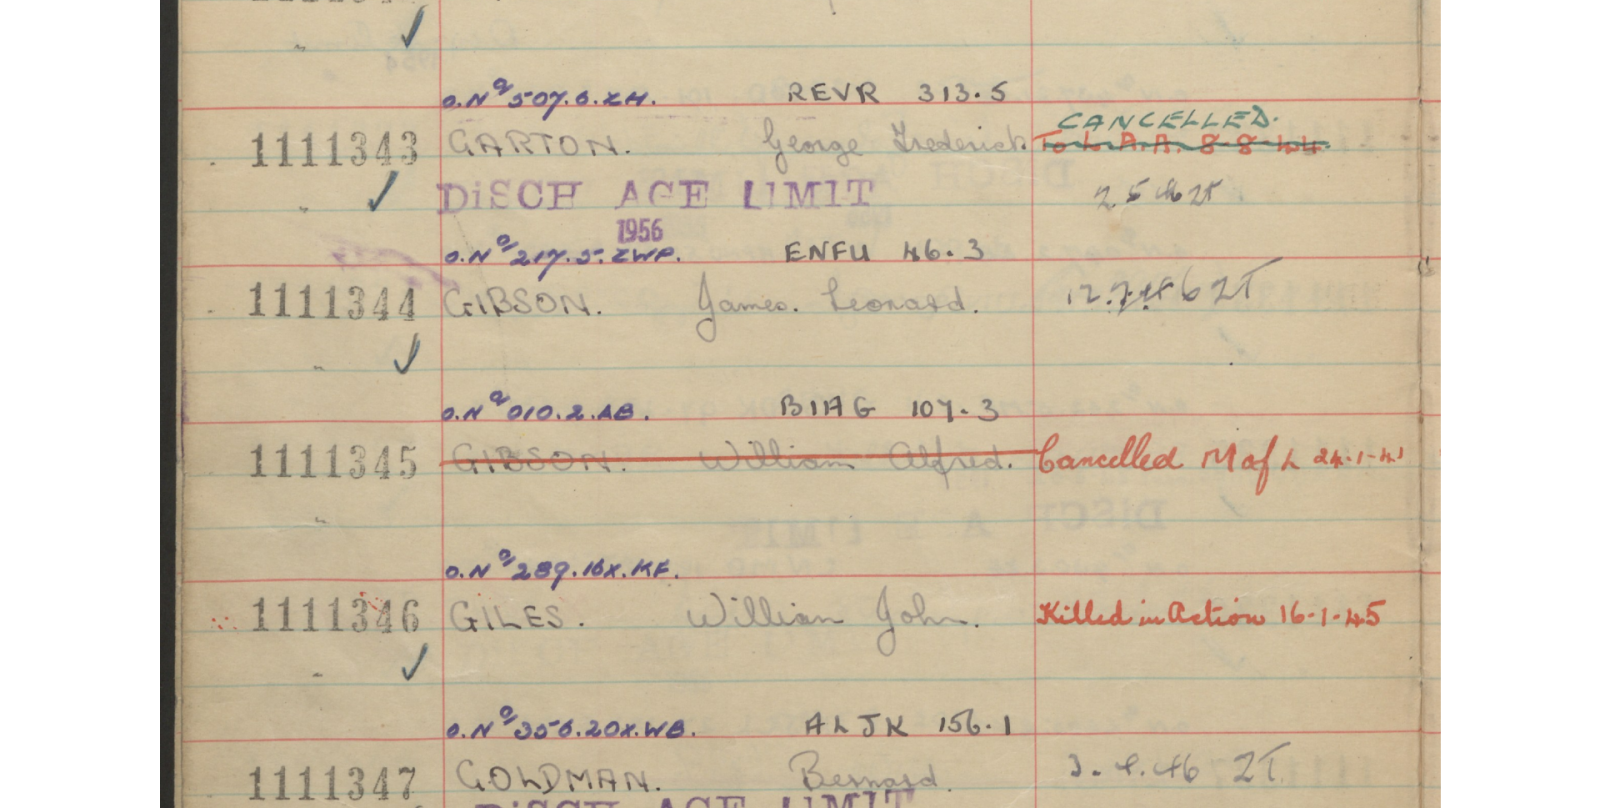 O.Nº 507.6.ZH. REVR 313.5
CANCELLED.
1111343 GARTON. George Frederick. To L.A.A. 8-8-44
DISCH AGE LIMIT 2 5 46 2T
1956
O.Nº 217.5.ZWP. ENFU 46.3
1111344 GIBSON. James. Leonard. 12.7.46 2T
O.Nº 010.2.AB. BIAG 107.3
1111345 GIBSON. William Alfred. Cancelled M of L 24-1-41
O.Nº 289.16X.KF.
1111346 GILES. William John. Killed in Action 16-1-45
O.Nº 356.20X.WB. ALJK 156.1
1111347 GOLDMAN. Bernard. 46 2T.
DISCH AGE LIMIT